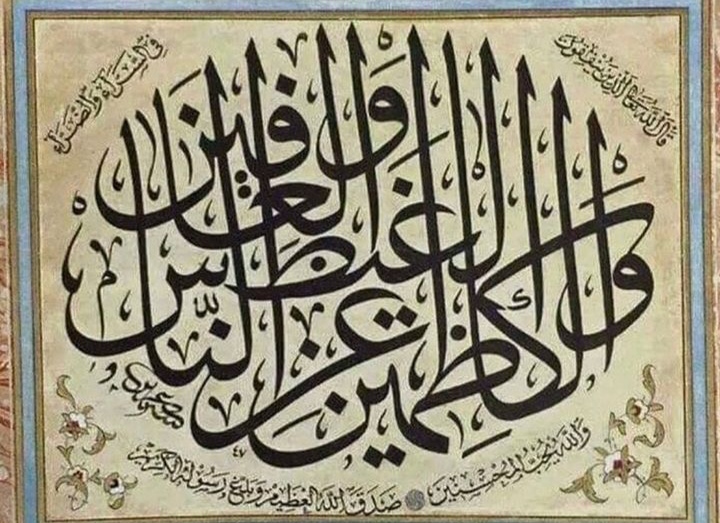 قال الله تعالى الذين ينفقون
في السراء والضراء
والكاظمين الغيظ والعافين عن الناس
والله يحب المحسنين
صدق الله العظيم وبلغ رسوله الكريم